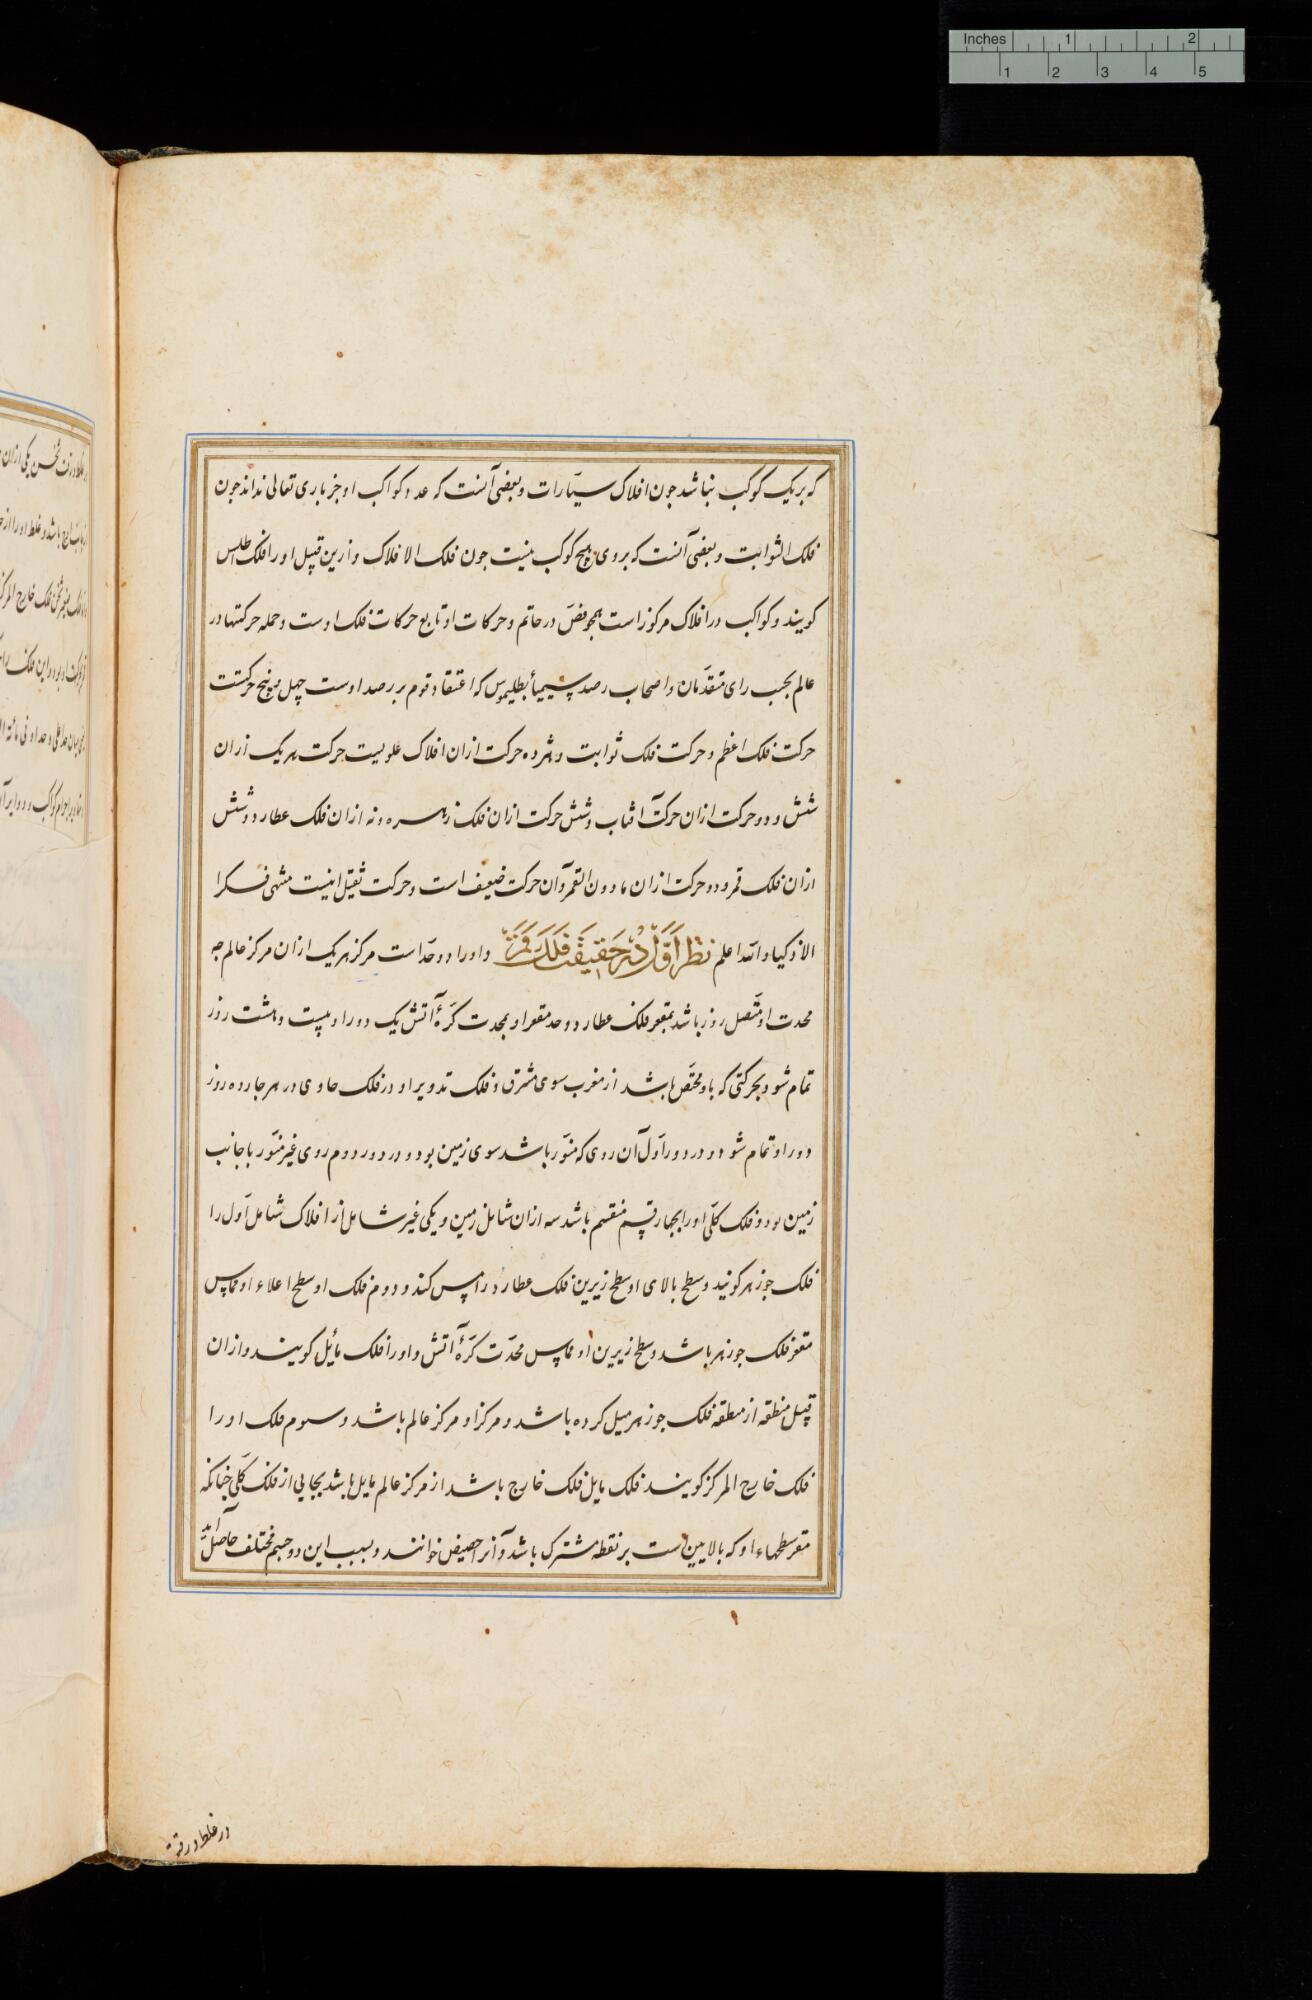 Inches 1 2
1 2 3 4 5
که بریک کوکب نباشد جون افلاک سیّارات و بعضی آنست که عدد کواکب او جز باری تعالی نداند جون
فلک الثوابت و بعضی آنست که بروی هیچ کوکب نیست جون فلک الافلاک و ازین قبیل او را فلک اطلس
کویند و کواکب در افلاک مرکوز است همجو فصّ در خاتم و حرکات او تابع حرکات فلک اوست و جمله حرکتها در
عالم بحسب رای متقدّمان و اصحاب رصد سیما بطلیموس که اعتقاد قوم بر رصد اوست چهل و پنج حرکتست
حرکت فلک اعظم و حرکت فلک ثوابت و هژده حرکت ازان افلاک علویست حرکت هریک ازان
شش و دو حرکت ازان حرکت آفتاب و شش حرکت ازان فلک زهره و نه ازان فلک عطارد و شش
ازان فلک قمر و دو حرکت ازان مادون القمر و آن حرکت ضعیف است و حرکت ثقیل اینست منتهی فکر
الاذکیا و الله اعلم نظر اوّل در حقیقت فلک قمر و او را دو حدّ است مرکز هریک ازان مرکز عالم جه
محدب او متّصل باشد بمقعر فلک عطارد و حد مقعر او بمحدب کرهٔ آتش یک دور او ببیست و هشت روز
تمام شود بحرکتی که باو مختصّ باشد از مغرب سوی مشرق و فلک تدویر او در فلک حاوی در هر جارده روز
دور او تمام شود و در دور اوّل آن روی که منوّر باشد سوی زمین بود و در دور دوم روی غیر منوّر با جانب
زمین بود و فلک کلّی او را بجهار قسم منقسم باشد سه ازان شامل زمین و یکی غیر شامل از افلاک شامل اوّل را
فلک جوزهر کویند و سطح بالای او سطح زیرین فلک عطارد را مس کند و دوم فلک او سطح اعلاء او مماس
مقعر فلک جوزهر باشد و سطح زیرین او مماس محدّب کرهٔ آتش و او را فلک مائل کویند و ازان
قبل منطقه از منطقه فلک جوزهر میل کرده باشد و مرکز او مرکز عالم باشد و سوم فلک او را
فلک خارج المرکز کویند فلک مایل فلک خارج باشد از مرکز عالم مایل باشد بجایی از فلک کلّی جنانکه
مقعر سطحهاء او که بالایین است بر نقطه مشترک باشد و آنرا حضیض خوانند و بسبب این دو جسم مختلف حاصل آید
در غلط و رقت